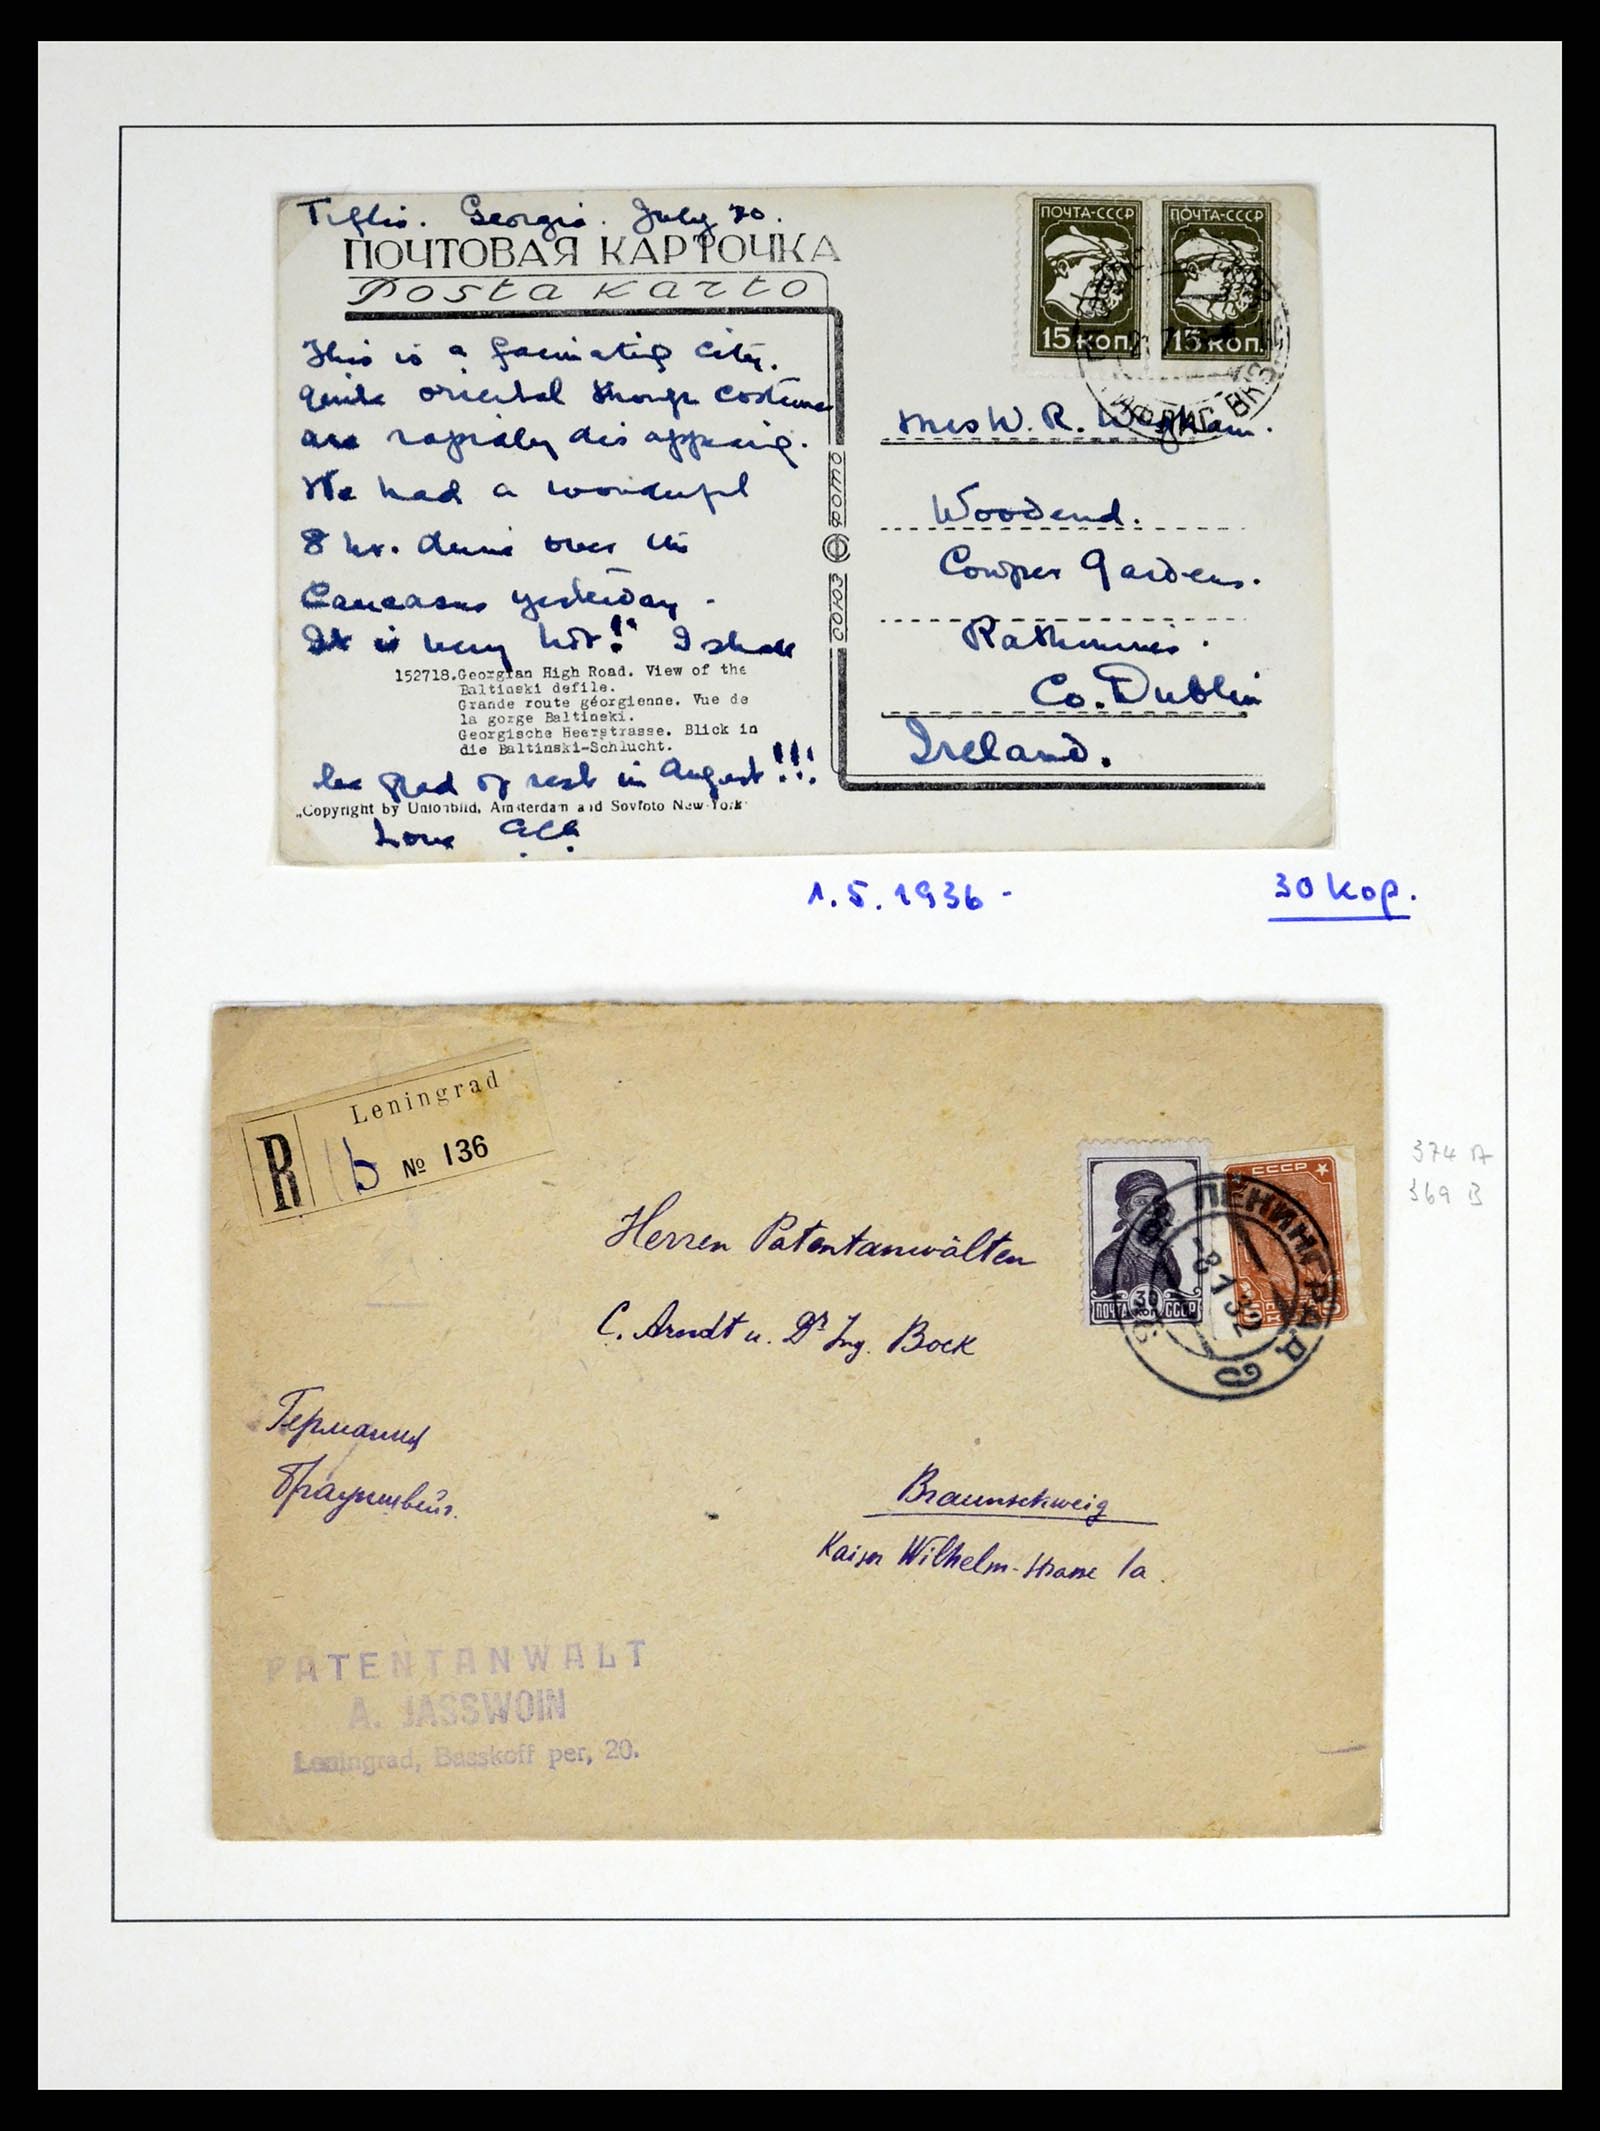 Tiflis. Georgia. July 20.
ПОЧТОВАЯ КАРТОЧКА
Posta karto
This is a fascinating city.
quite oriental though costumes
are rapidly disappearing.
We had a wonderful
8 hr. drive over the
Caucasus yesterday.
It is very hot! I shall
152718. Georgian High Road. View of the
Baltinski defile.
Grande route géorgienne. Vue de
la gorge Baltinski.
Georgische Heerstrasse. Blick in
die Baltinski-Schlucht.
be glad of rest in August!!!
„Copyright by Unionbild, Amsterdam and Sovfoto New-York"
Love
СОЮЗ ФОТО
ПОЧТА-СССР
15 КОП.
ПОЧТА-СССР
15 КОП.
Mrs W. R.
Woodend.
Cowper Gardens.
Rathmines.
Co. Dublin
Ireland.
1.5.1936 -
30 kop.
Leningrad
R
b № 136
ПОЧТА 30 КОП СССР
СССР
ЛЕНИНГРАД
8 7 32
374 A
369 B
Herren Patentanwälten
C. Arndt u. Dr Ing. Bock
Германия
Брауншвейг.
Braunschweig
Kaiser Wilhelm-strasse 1a.
PATENTANWALT
A. JASSWOIN
Leningrad, Basskoff per, 20.